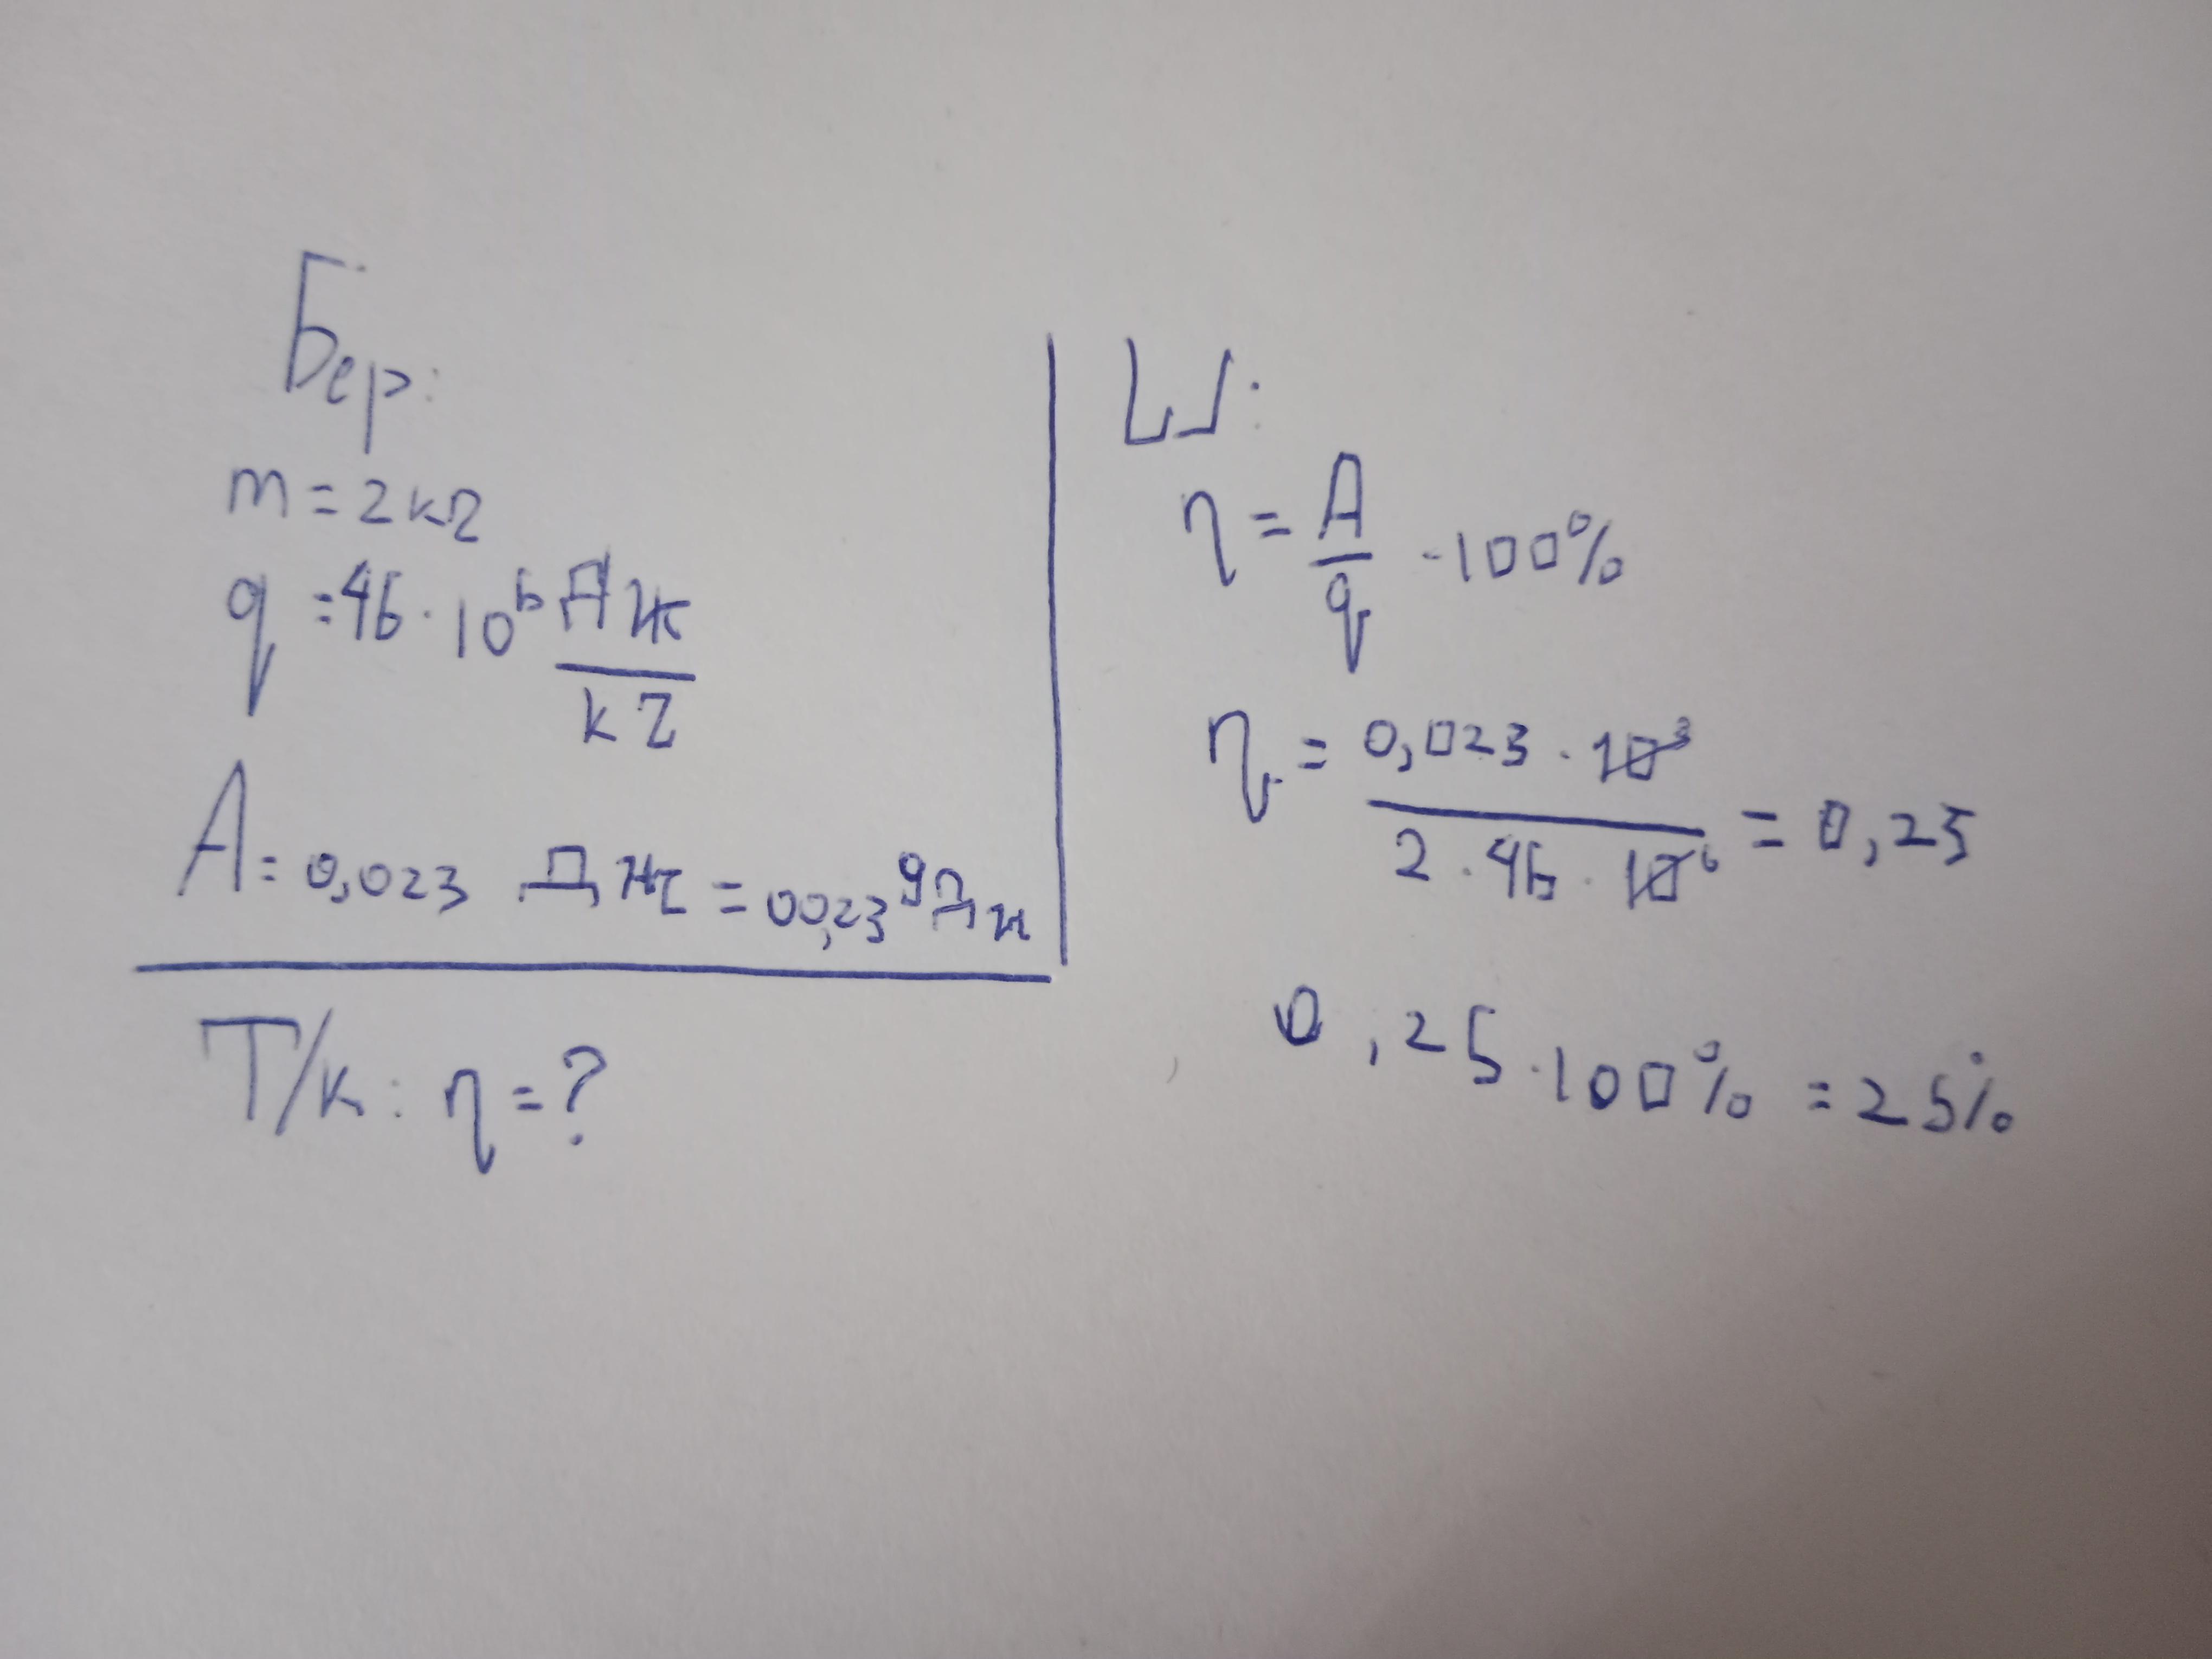 Бер:
m = 2 кг
q = 46 · 10⁶ Дж/кг
A = 0,023 Дж = 00,23⁹ Дж
Т/к: η = ?
Ш:
η = A/q · 100%
η = 0,023 · 10³ / 2 · 46 · 10⁶ = 0,25
0,25 · 100% = 25%